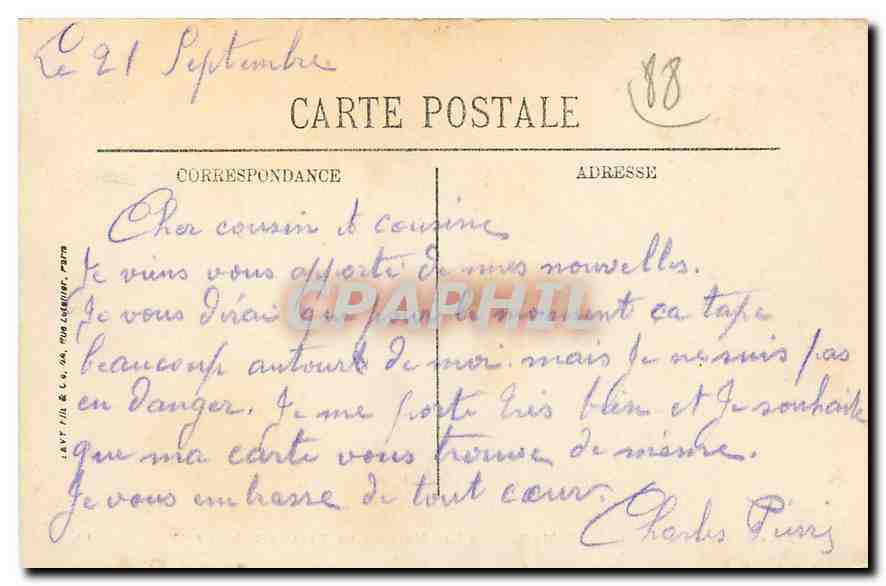 Le 21 Septembre
88
CARTE POSTALE
CORRESPONDANCE
ADRESSE
Cher cousin et cousine
Je viens vous apporté de mes nouvelles.
Je vous dirai que pour le moment ca tape
beaucoup autour de moi mais Je ne suis pas
en danger. Je me porte très bien et Je souhaite
que ma carte vous trouve de même.
Je vous embrasse de tout cœur.
Charles
LEVY Fils & Co, 44, Rue Letellier, Paris
CPAPHIL